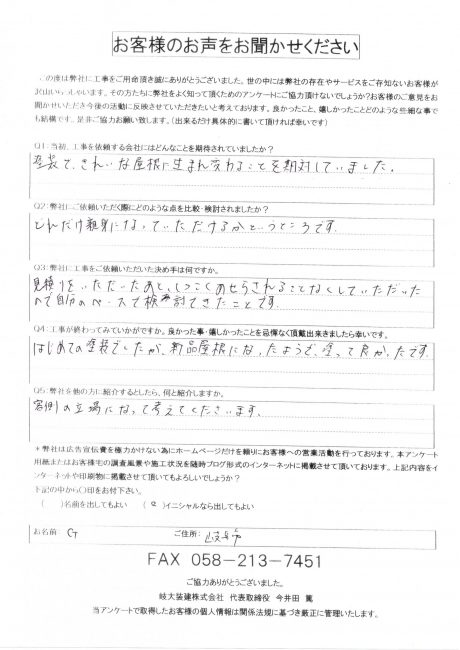 お客様のお声をお聞かせください
この度は弊社に工事をご用命頂き誠にありがとうございました。世の中には弊社の存在やサービスをご存知ないお客様が
沢山いらっしゃいます。その方たちに弊社をよく知って頂くためのアンケートにご協力頂けないでしょうか?お客様のご意見をお
聞かせいただき今後の活動に反映させていただきたいと考えております。良かったこと、嬉しかったことどのような些細な事で
も結構です。是非ご協力お願い致します。(出来るだけ具体的に書いて頂ければ幸いです)
Q1:当初、工事を依頼する会社にはどんなことを期待されていましたか?
塗装で、きれいな屋根に生まれ変わることを期待していました。
Q2:弊社にご依頼いただく際にどのような点を比較・検討されましたか?
どれだけ親身になっていただけるかというところです。
Q3:弊社に工事をご依頼いただいた決め手は何ですか。
見積りをいただいたあと、しつこくあせらされることなくしていただいた
ので自分のペースで検討できたことです。
Q4:工事が終わってみていかがですか。良かった事・嬉しかったことを忌憚なく頂戴出来きましたら幸いです。
はじめての塗装でしたが、新品屋根になったようで、塗って良かったです。
Q5:弊社を他の方に紹介するとしたら、何と紹介しますか。
客側の立場になって考えてくださいます。
*弊社は広告宣伝費を極力かけない為にホームページだけを頼りにお客様への営業活動を行っております。本アンケート
用紙またはお客様宅の調査風景や施工状況を随時ブログ形式のインターネットに掲載させて頂いております。上記内容をイ
ンターネットや印刷物に掲載させて頂いてもよろしいでしょうか?
下記の中から〇印をお付下さい。
( )名前を出してもよい (○)イニシャルなら出してもよい
お名前: G ご住所: 岐阜市
FAX 058-213-7451
ご協力ありがとうございました。
岐大装建株式会社 代表取締役 今井田 篤
当アンケートで取得したお客様の個人情報は関係法規に基づき厳正に管理いたします。